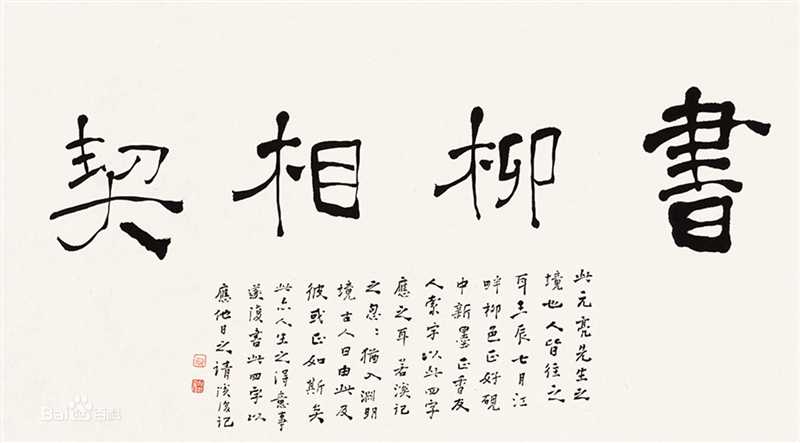 書柳相契
此元亮先生之
境也人皆往之
耳壬辰七月江
畔柳色正好硯
中新墨正香友
人索字以此四字
應之耳若溪記
之忽〻猶入淵明
境古人曰由此及
彼或正如斯矣
此亦人生之得意事
遂復書此四字以
應他日之請溪復記
Baidu百科